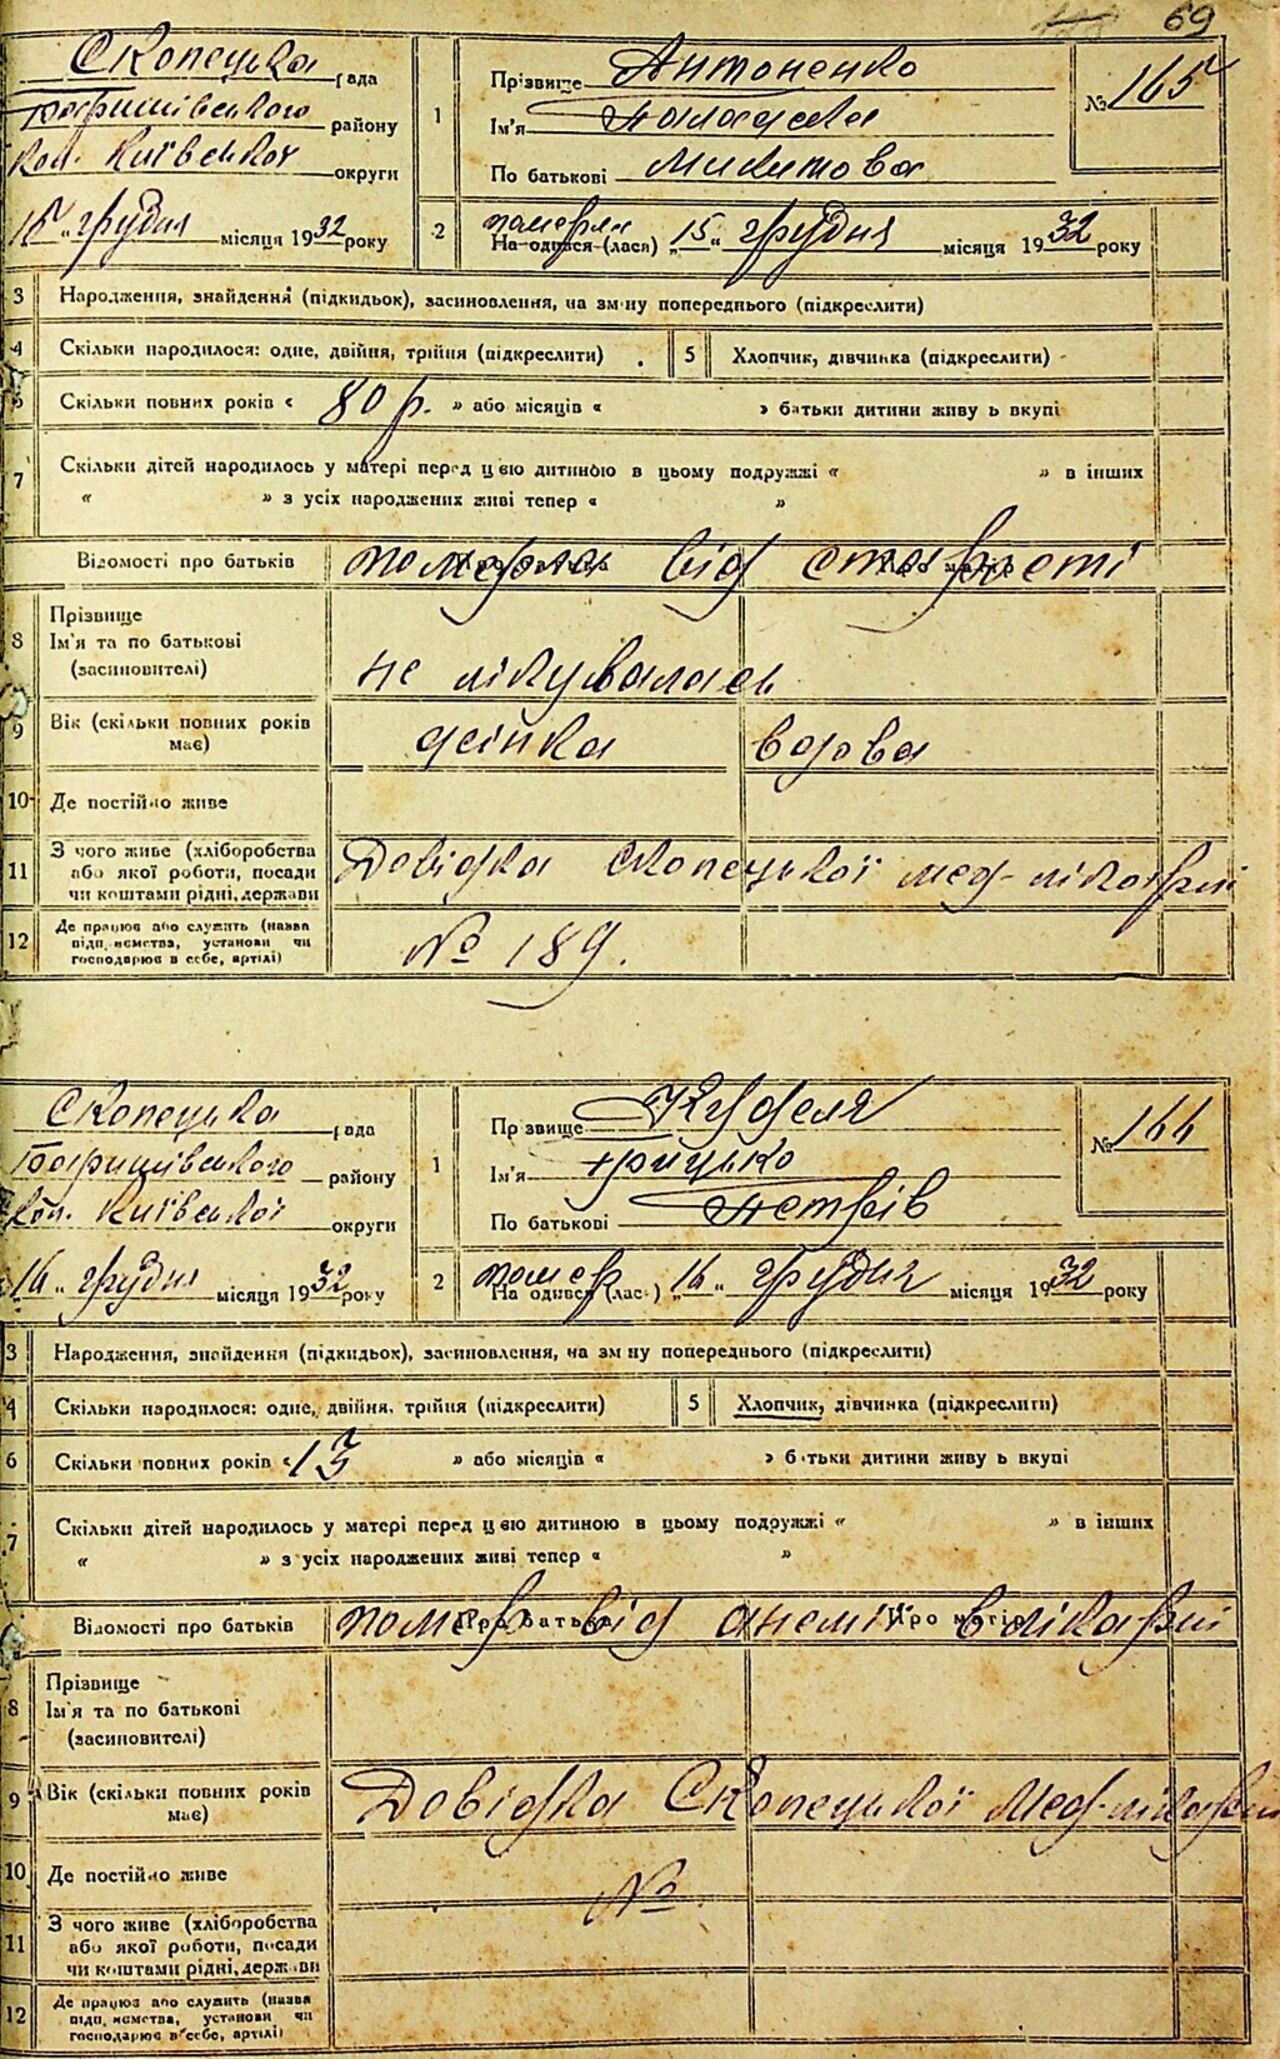 69
Скопецька рада
Баришівського району
Кол. Київської округи
15 „ грудня місяця 1932 року
1
Прізвище Антоненко
Ім'я Палажка
По батькові Микитова
№ 165
2
померла
На одився (лася) „15“ грудня місяця 1932 року
3 Народження, знайдення (підкидьок), засиновлення, на зміну попереднього (підкреслити)
4 Скільки народилося: одне, двійня, трійня (підкреслити) 5 Хлопчик, дівчинка (підкреслити)
6 Скільки повних років « 80 р. » або місяців « » батьки дитини живу ь вкупі
7 Скільки дітей народилось у матері перед цією дитиною в цьому подружжі « » в інших
« » з усіх народжених живі тепер « »
Відомості про батьків померла від старості
8 Прізвище
Ім'я та по батькові
(засиновителі)
не лікувалась
9 Вік (скільки повних років
має)
жінка вдова
10 Де постійно живе
11 З чого живе (хліборобства
або якої роботи, посади
чи коштами рідні, держави
Довідка Скопецької мед-лікарні
12 Де працює або служить (назва
підп, иємства, установи чи
господарює в себе, артілі)
№ 189.
Скопецька рада
Баришівського району
Кол. Київської округи
16 „ грудня місяця 1932 року
1
Пр звище Кужеля
Ім'я Грицько
По батькові Петрів
№ 166
2
помер
На одився (лась) „16“ грудня місяця 1932 року
3 Народження, знайдення (підкидьох), засиновлення, на зм ну попереднього (підкреслити)
4 Скільки народилося: одне, двійня, трійня (підкреслити) 5 Хлопчик, дівчинка (підкреслити)
6 Скільки повних років « 13 » або місяців « » батьки дитини живу ь вкупі
7 Скільки дітей народилось у матері перед цією дитиною в цьому подружжі « » в інших
« » з усіх народжених живі тепер « »
Відомості про батьків Про батька Про матір
помер від анемії в лікарні
8 Прізвище
Ім'я та по батькові
(засиновителі)
9 Вік (скільки повних років
має)
Довідка Скопецької мед-лікарні
10 Де постійно живе
№
11 З чого живе (хліборобства
або якої роботи, посади
чи коштами рідні, держави
12 Де працює або служить (назва
підп, иємства, установи чи
господарює в себе, артілі)